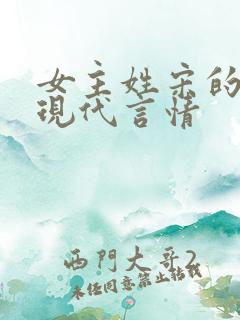 女主姓宋的
现代言情
西門大哥2
未经同意禁止转载